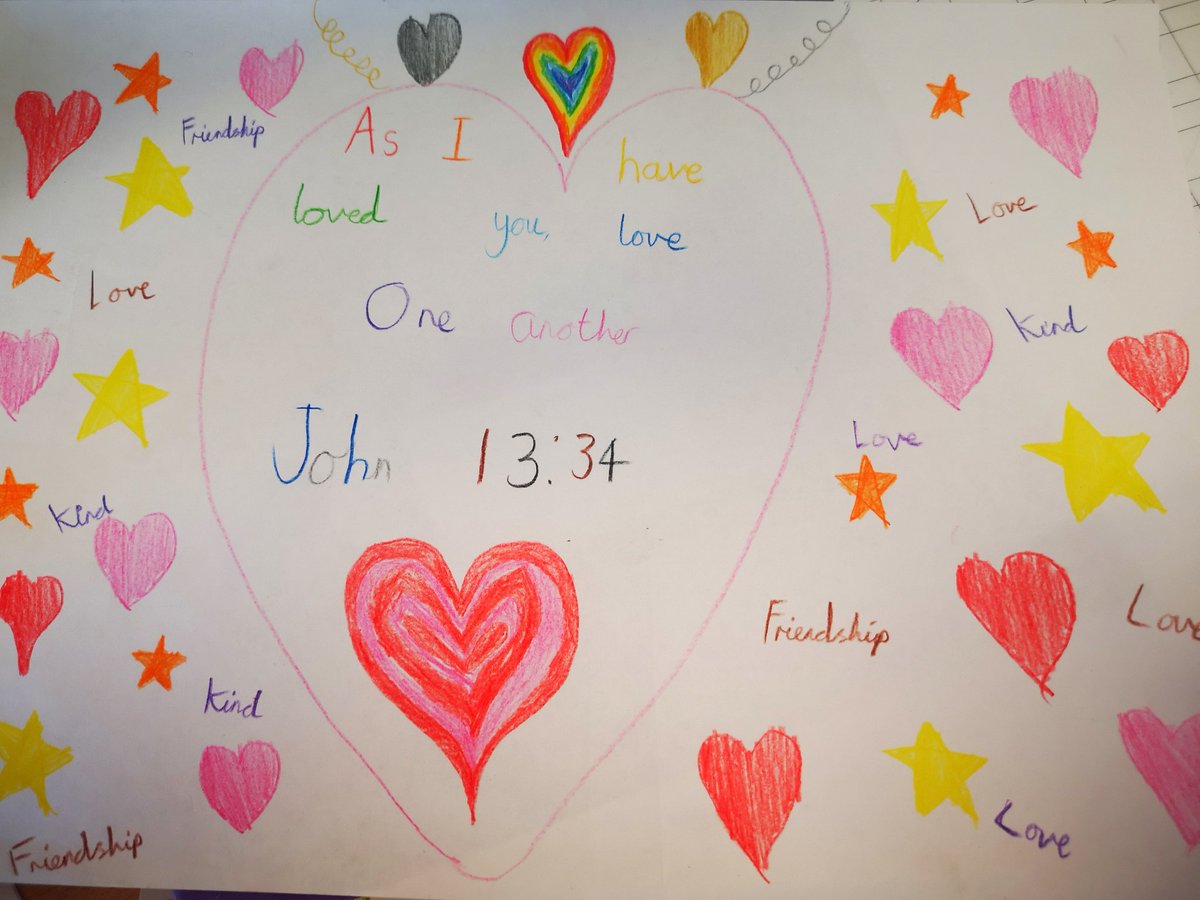 Friendship
As I have
loved you, love
One another
John 13:34
Love
Kind
Kind
Friendship
Love
Kind
Love
Friendship
Love
Love